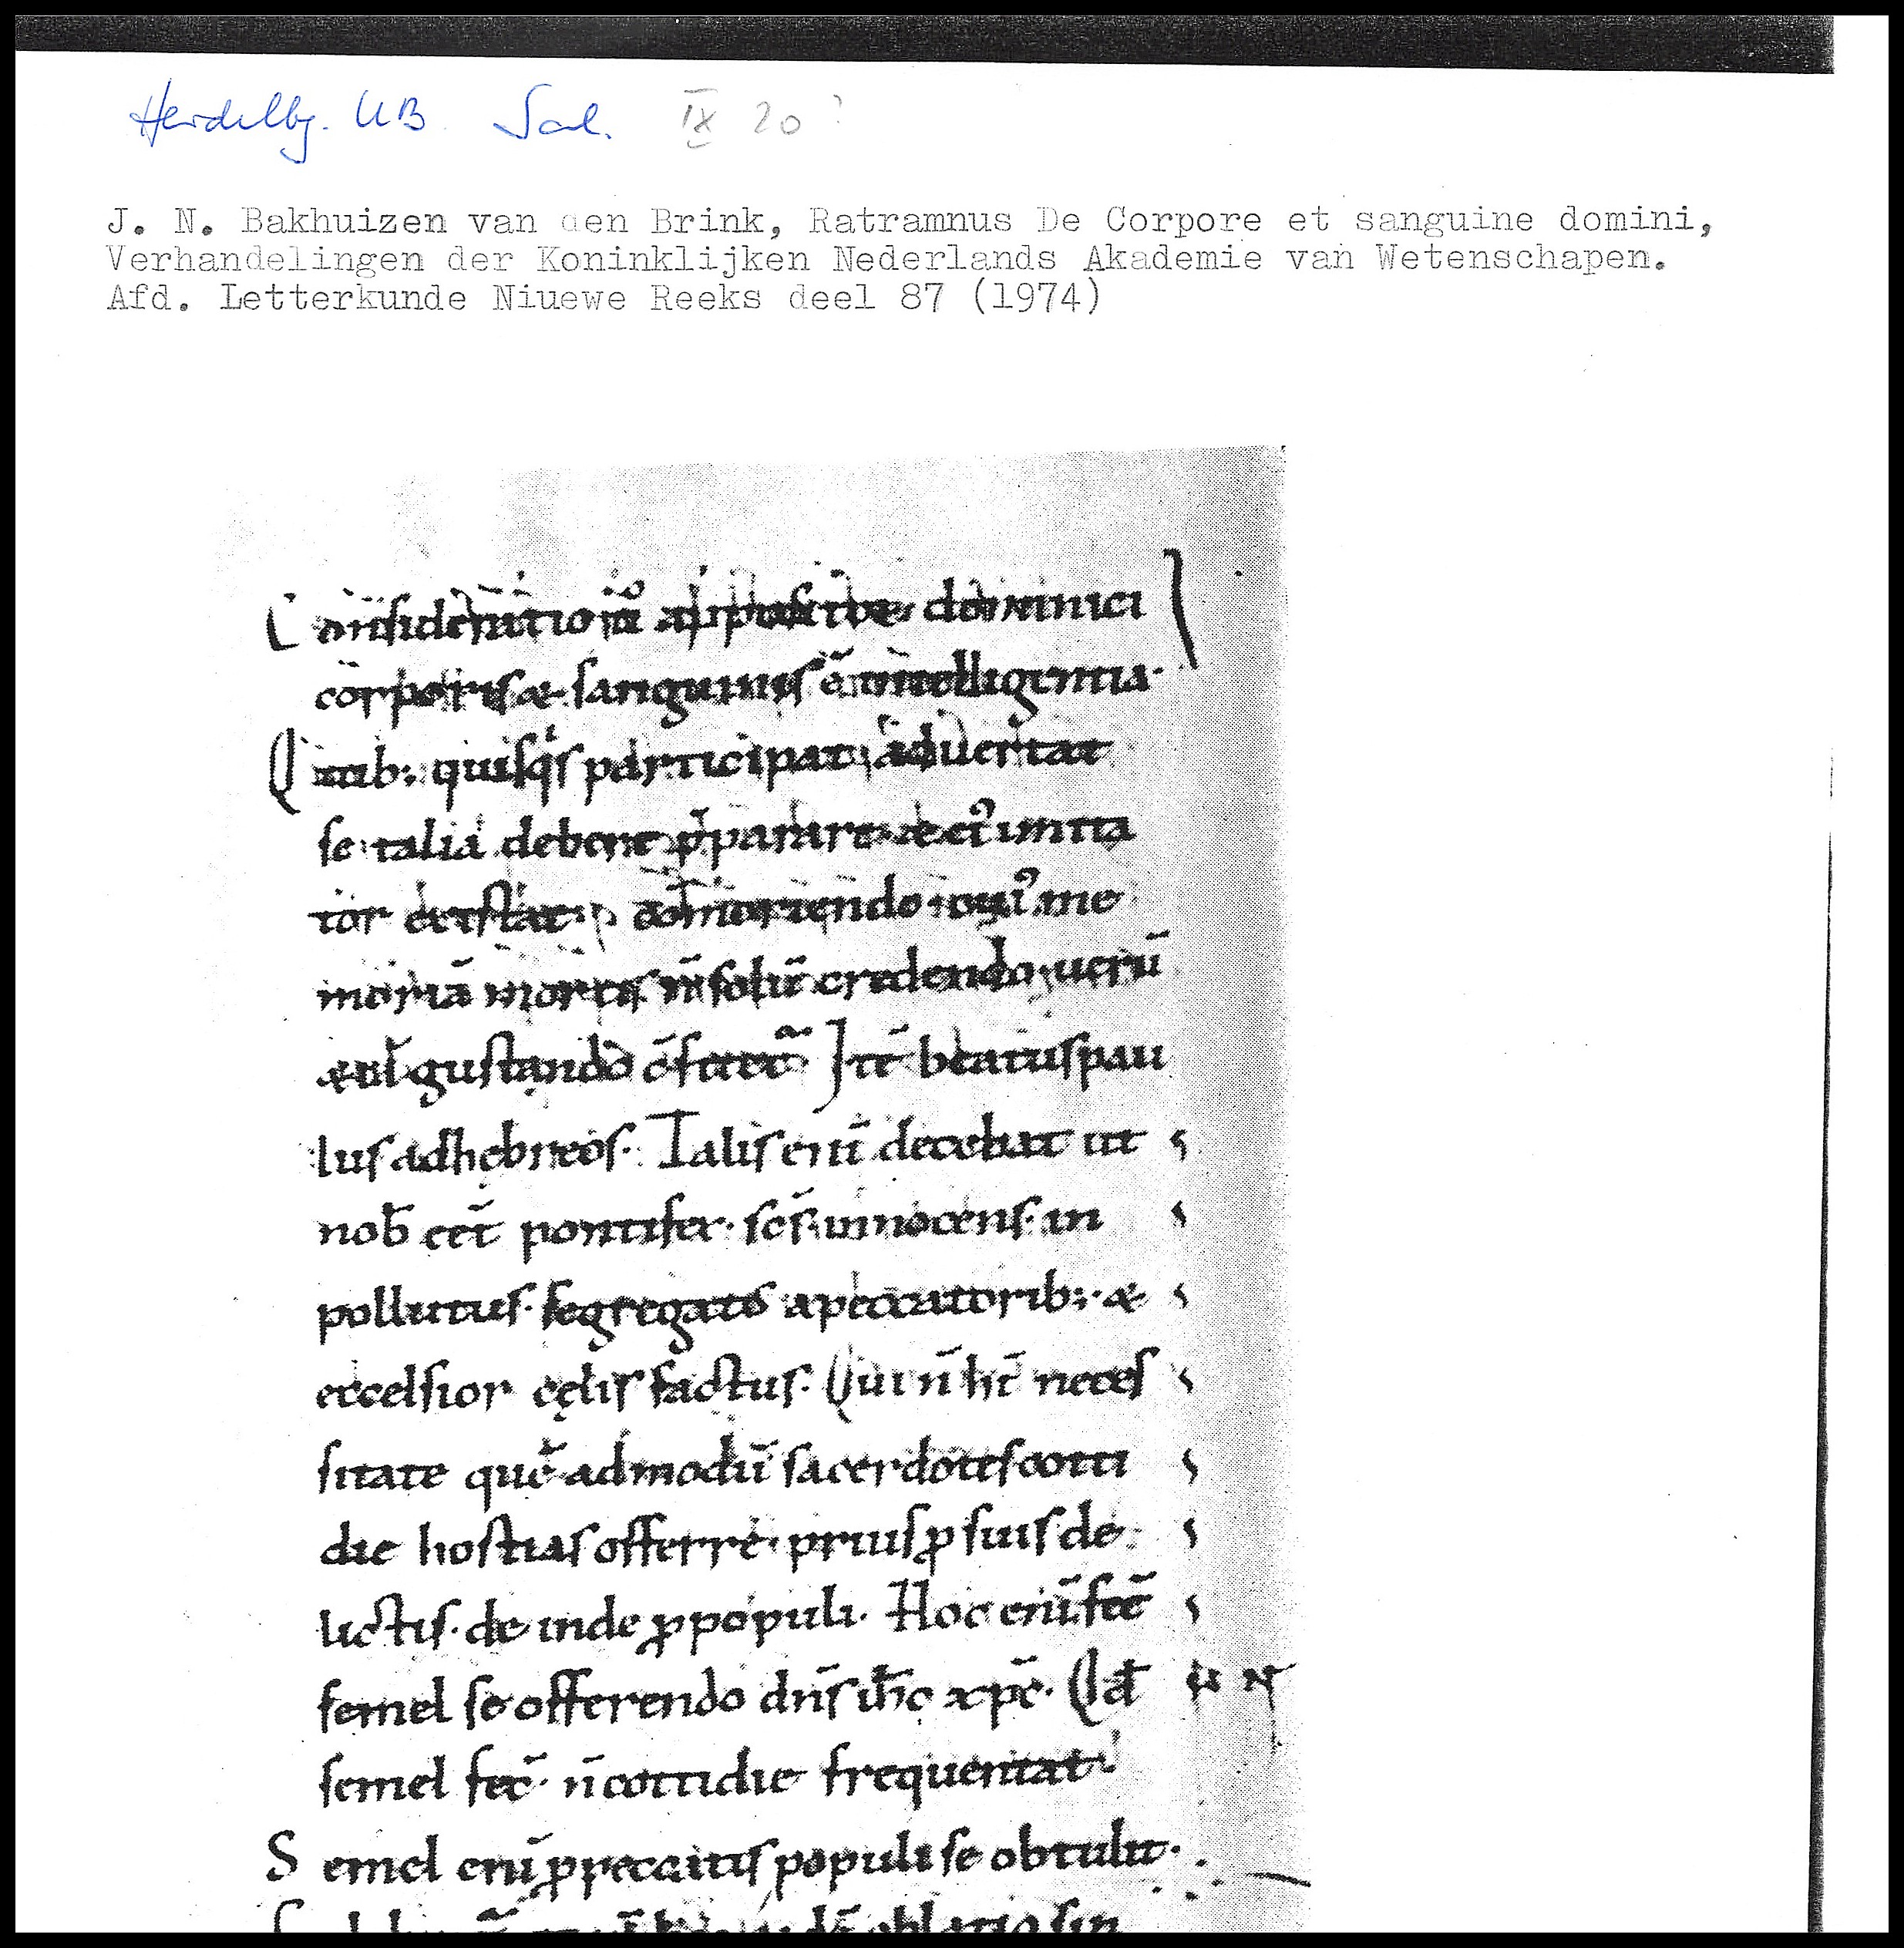 Heidelbg. UB Sal. IX 20?
J. N. Bakhuizen van den Brink, Ratramnus De Corpore et sanguine domini,
Verhandelingen der Koninklijken Nederlands Akademie van Wetenschapen.
Afd. Letterkunde Niuewe Reeks deel 87 (1974)
dominici
corporis & sanguinis ē intelligentia·
Quib; quisq̇s participat aduertat
se talia debere p̄parare
tor
moriā mortis n̄ solū credendo uerū
gustando Itē beatus pau
lus ad hebreos· Talis eni͂ decebat ut
nob̄ eēt pontifex· sc̄s· innocens· in
pollutus· segregatus a peccatorib;· &
excelsior cęlis factus· Qui n̄ ht̄ neces
sitate quē admodū sacerdotes cotti
die hostias offerre· prius ꝓ suis de
lictis· de inde ꝓ populi· Hoc enī fec̄
semel se offerendo dn̄s ih̄c xp̄c· Qđ
semel fec̄· n̄ cottidie frequentat·
Semel enī ꝓ peccatis populi se obtulit·